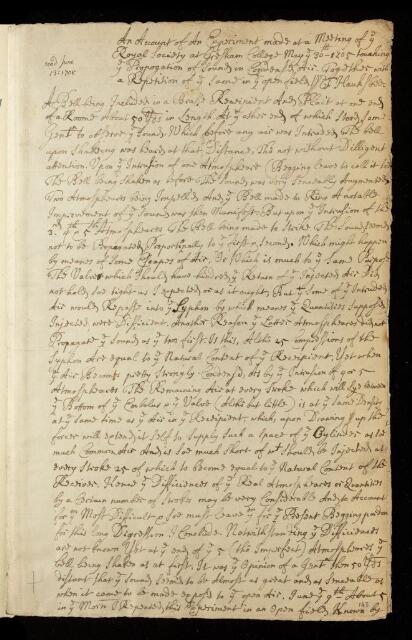 An Account of An Experiment made at a Meeting of y
Royal Society at Gresham College May y 30th 1705 touching
y Propagation of Sound in Condensed Air. Together with
a Repetition of y Same in y open field. F Hauksbee
read June
13 1705
A Bell being Included in a Brass Recipient And Plac't at one end
of a Roome About 50 yds in Length, At y other end of which stood some
sent to observe y Sound; Which before any air was Intruded, The bell
upon Shakeing was heard at that Distance, Tho not without Dilligent
attention. Upon y Intrusion of one Atmosphere (Begging leave to call it so)
The Bell being Shaken as before The Sound was very Sensibly Augmented,
Two Atmospheres being Impelled, And y Bell made to Ring A notable
Improvement of y Sound was then Manifest: But upon y Intrusion of the
3d 4th 5th Atmospheres The Bell being made to Strike The Sound seemed
not to be Propagated Proportionally to y first & second, Which might happen
by means of some Escapes of Air, Or Which is much to y same Purpose
The Valve which should have hindred y Return of y Injected Air Did
not hold so tight as I expected or as it ought, But some of y Intruded
Air would Repass into y Syphon by which means y Quantities Supposed
Injected were Difficient. Another Reason y Latter Atmospheres did not
Propagate y Sound as y two first Is this, Altho 25 impressions of the
Syphon Are equal to y Natural Content of y Recipient, Yet when
y Air Becoms pretty Strongly Condens'd, As by y Intrusion of 4 or 5
Atmospheres (The Remaining Air at every Stroke which will be between
y Bottom of y Embolus and y Valve (Altho but little) is at y same Density
at y same time as y Air in y Recipient, which, upon Drawing up the
forcer will extend it self to Supply such a Space of y Cylinder as so
much Common Air And is soe much Short of wt Should be Injected at
every Stroke 25 of which to become equal to y Natural Content of the
Receiver. Hence y Difficiences of y Real Atmospheres or Quantities
by a Certain number of Strokes may be very Considerable And to Account
for y Most Difficult & soe must leave y for y Present Begging pardon
for this long Digression. I Conclude, Notwithstanding y Difficiences
are not known Yet at y end of y 5 (tho Imperfect) Atmospheres y
bell being Shaken as at first. It was y Opinion of a Gentn then 50 yds
distant that y Sound Seemed to be Almost as great and as sensible as
when it came to be made exposed to y open Air. June y 9th About 5
in y Morn I Repeated this Experiment in an Open field, Known by